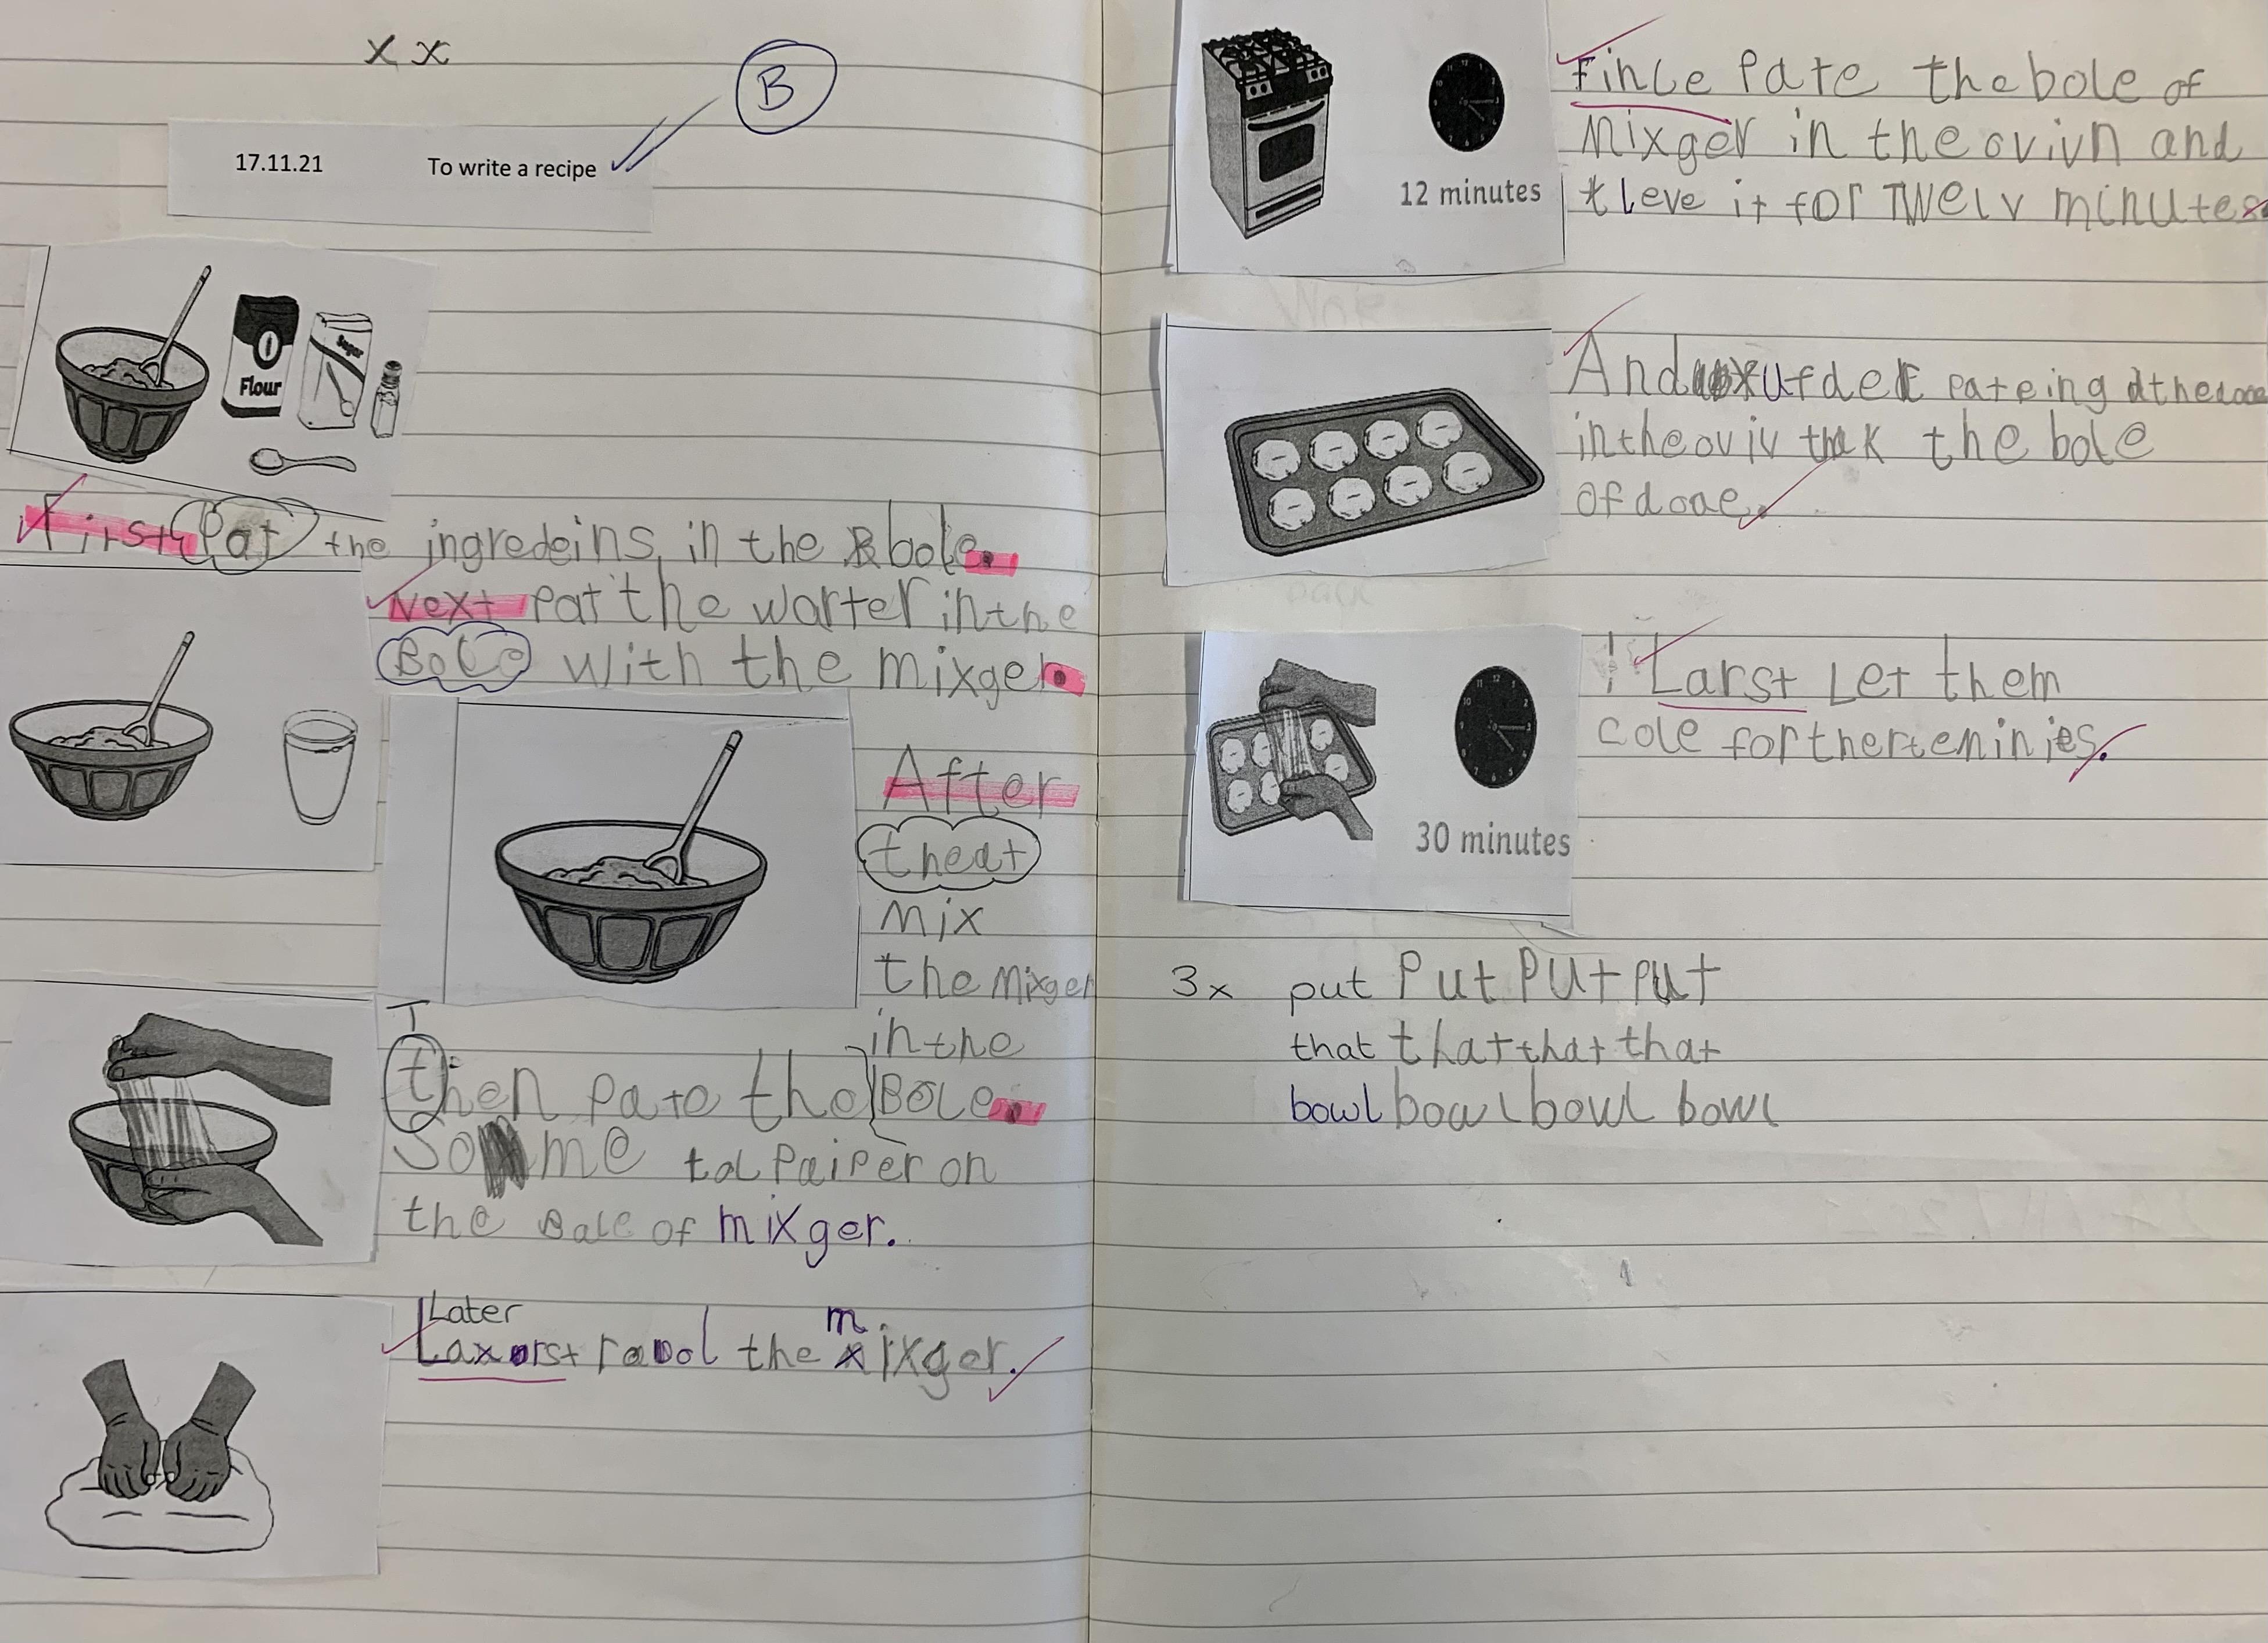 x x
B
17.11.21 To write a recipe
Flour
Sugar
First Pat the ingredeins in the bole.
Next Pat the warter in the
Bole with the mixger.
After
theat
mix
the mixger
in the
Bole.
T
then pate the
Some tol Paiper on
the Bale of mixger.
Later
the m ixger.
12 minutes
Fince Pate the bole of
mixger in the ovivn and
leve it for Twelv minutes
And ufder pateing
in the oviv the bole
of done.
30 minutes
Larst Let them
cole for therteminies.
3x put Put PUt put
that that that that
bowl bowl bowl bowl